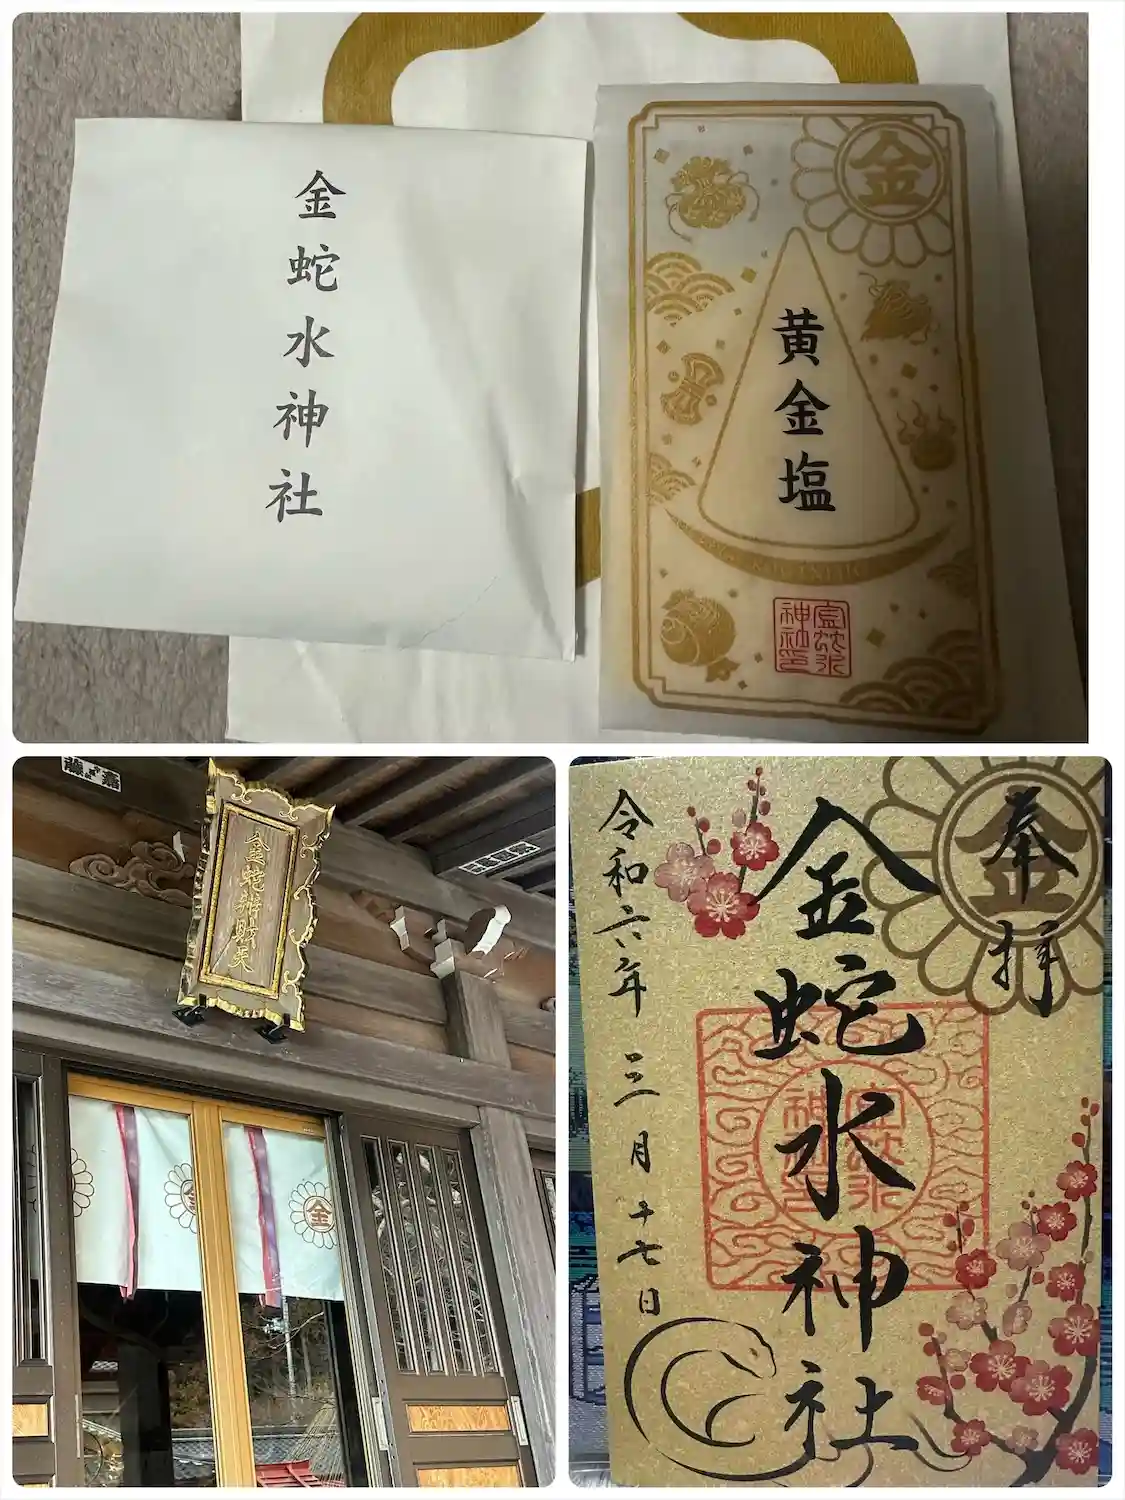 金蛇水神社
金
黄金塩
金蛇水神社印
金蛇辨財天
金
奉拝
金
金蛇水神社
令和六年 三月十七日